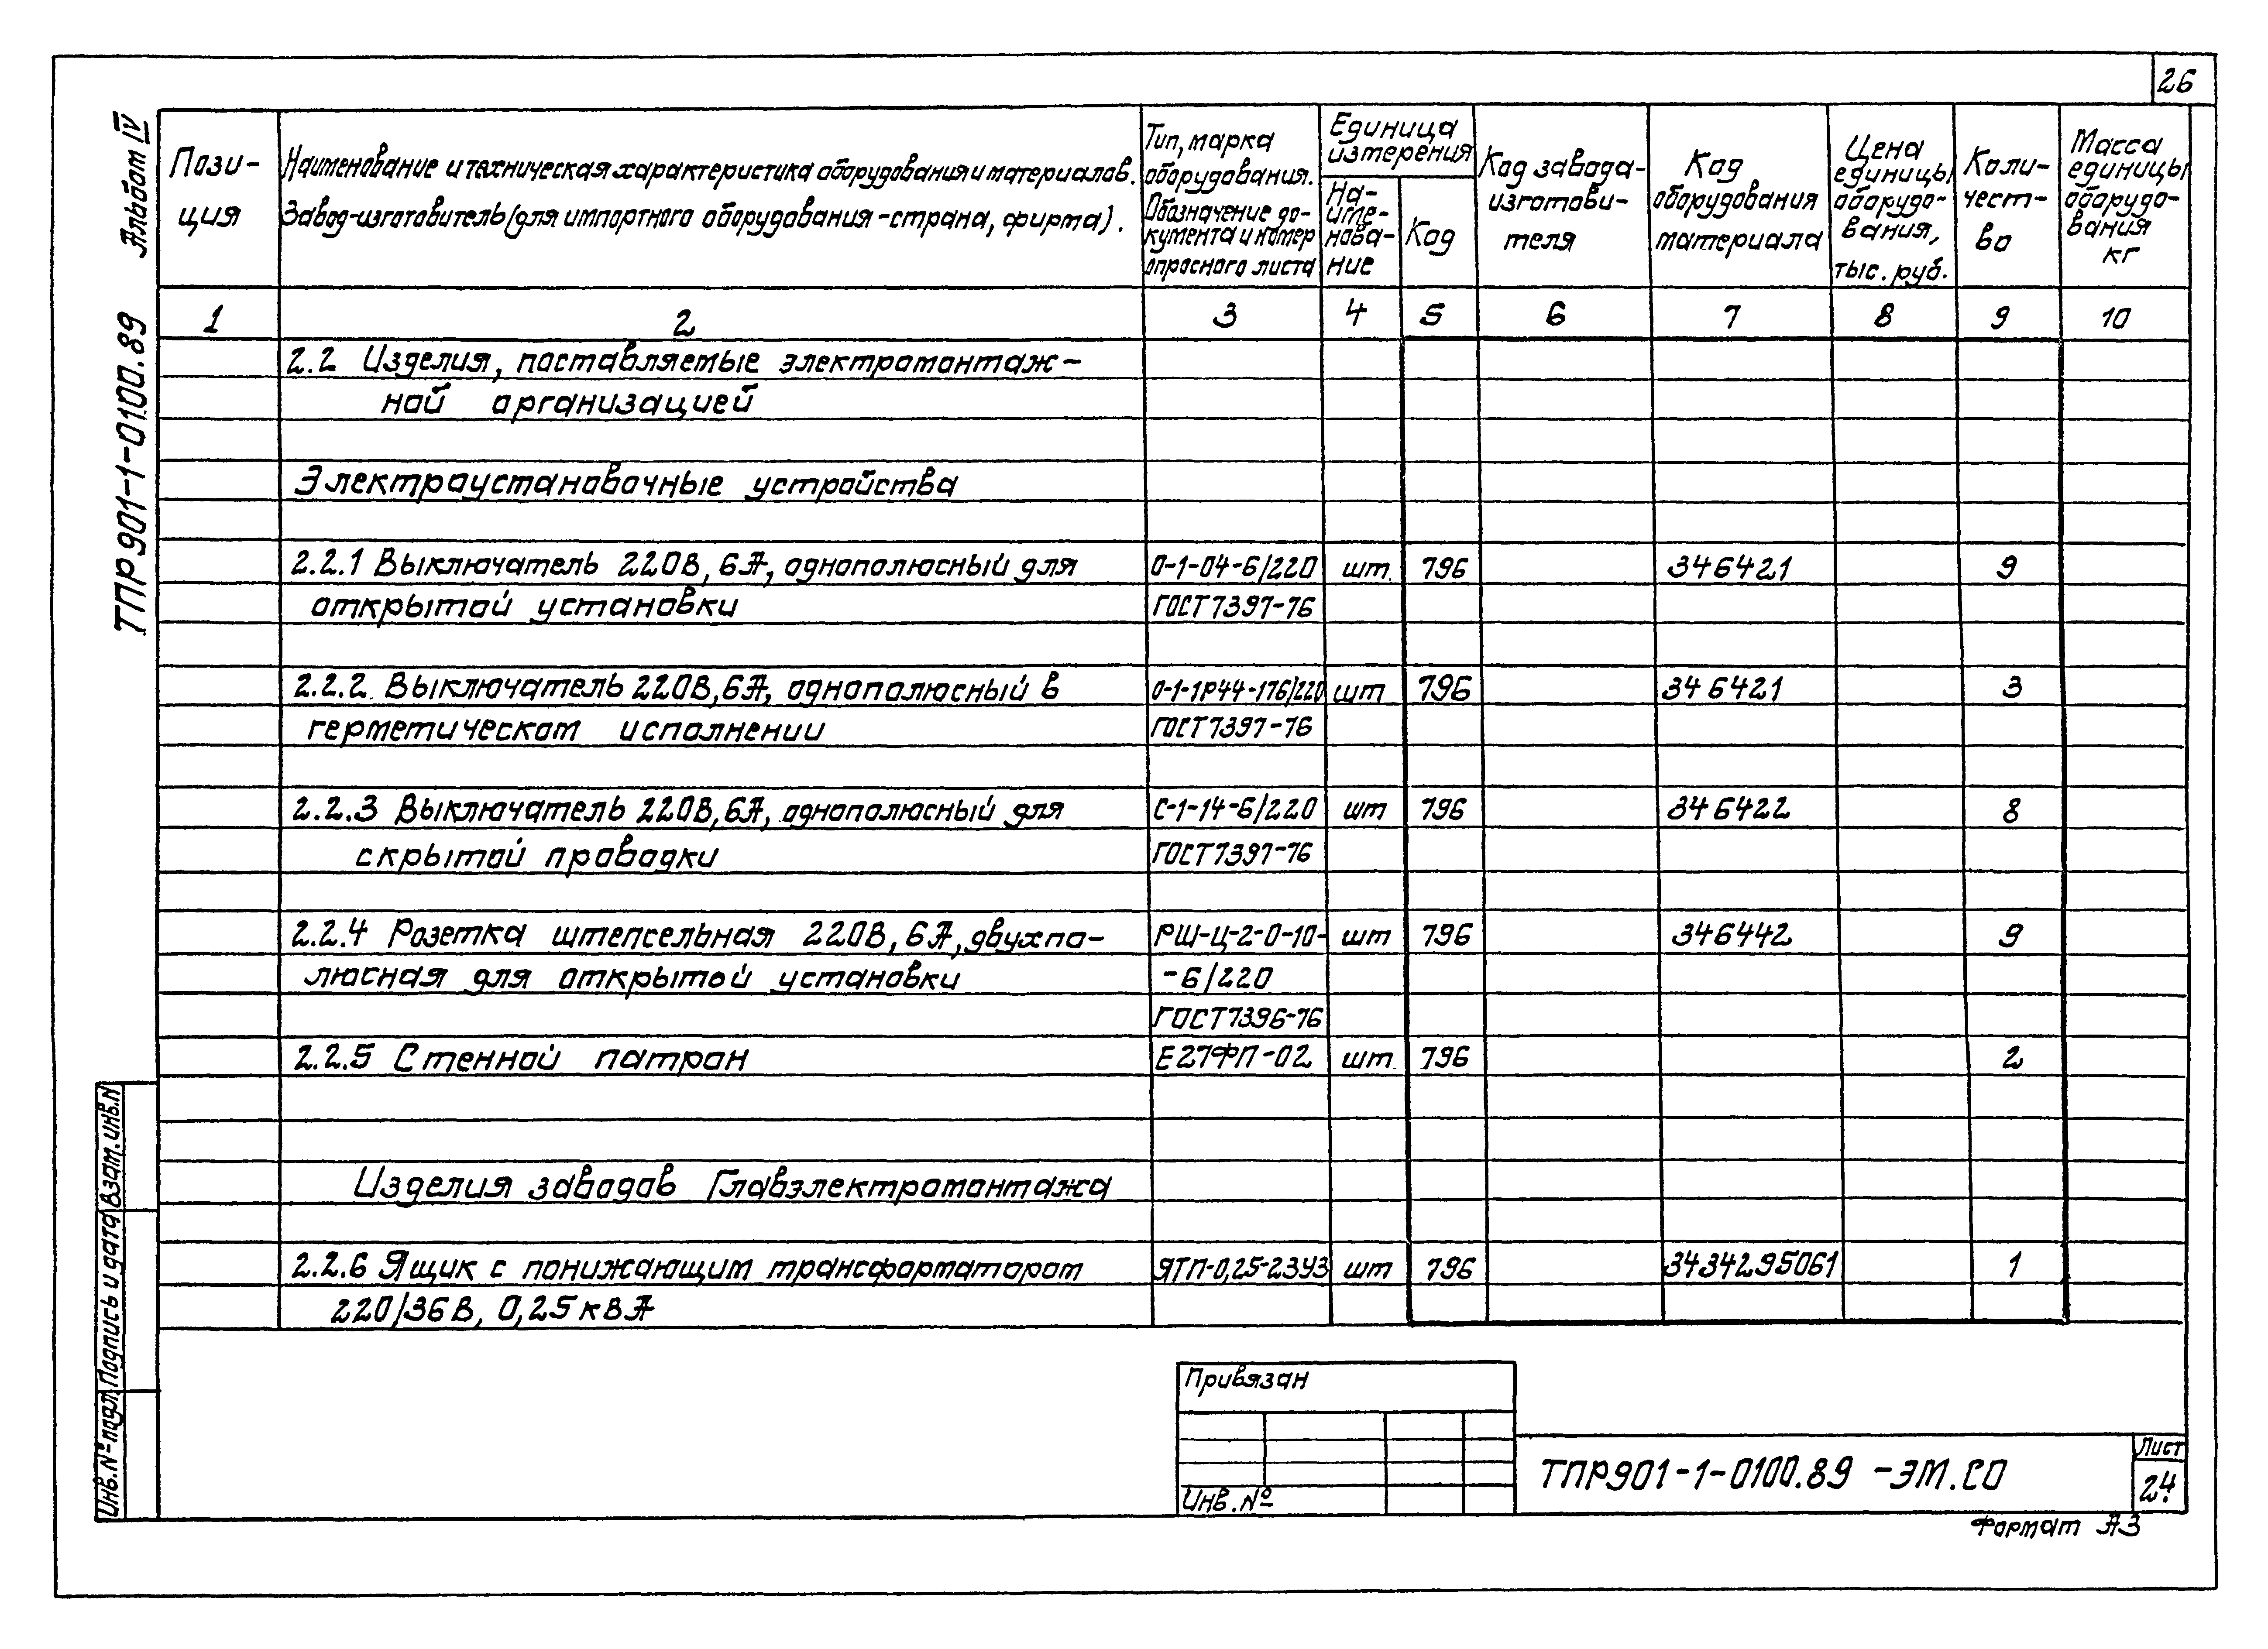 26
Альбом IV
ТПР901-1-0100.89
Пози-
ция
Наименование и техническая характеристика оборудования и материалов.
Завод-изготовитель (для импортного оборудования - страна, фирма).
Тип, марка
оборудования.
Обозначение до-
кумента и номер
опросного листа
Единица
измерения
На-
име-
нова-
ние
Код
Код завода-
изготови-
теля
Код
оборудования
материала
Цена
единицы
оборудо-
вания,
тыс. руб.
Коли-
чест-
во
Масса
единицы
оборудо-
вания
кг
1 2 3 4 5 6 7 8 9 10
2.2 Изделия, поставляемые электромонтаж-
ной организацией
Электроустановочные устройства
2.2.1 Выключатель 220В, 6А, однополюсный для О-1-04-6/220 шт. 796 346421 9
открытой установки ГОСТ 7397-76
2.2.2. Выключатель 220В, 6А, однополюсный в О-1-1Р44-176/220 шт 796 346421 3
герметическом исполнении ГОСТ 7397-76
2.2.3 Выключатель 220В, 6А, однополюсный для С-1-14-6/220 шт 796 346422 8
скрытой проводки ГОСТ 7397-76
2.2.4 Розетка штепсельная 220В, 6А, двухпо- РШ-Ц-2-0-10- шт 796 346442 9
люсная для открытой установки -6/220
ГОСТ 7396-76
2.2.5 Стенной патрон Е27ФП-02 шт. 796 2
Изделия заводов Главэлектромонтажа
2.2.6 Ящик с понижающим трансформатором ЯТП-0,25-23У3 шт 796 3434295061 1
220/36В, 0,25 кВА
Взам. инв. N
Подпись и дата
Инв. № подл.
Привязан
Инв. №
ТПР901-1-0100.89 -ЭМ.СО
Лист
24
Формат А3